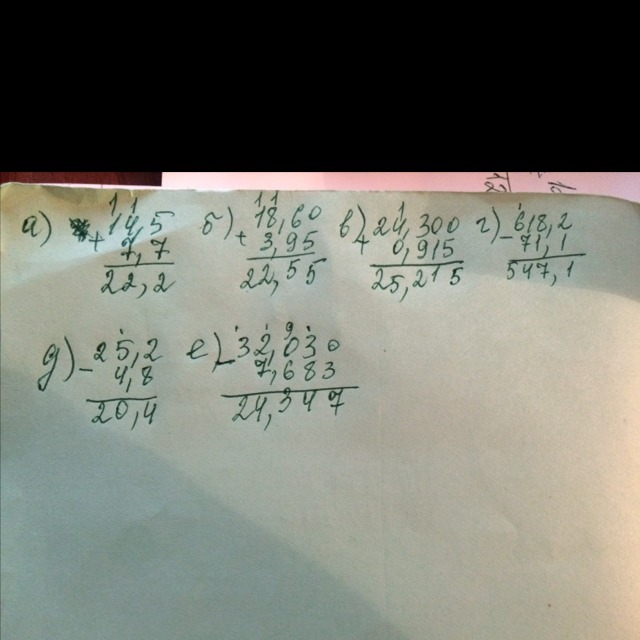 а) + 14,5 б) + 18,60 в) + 24,300 г) - 618,2
7,7 3,95 0,915 71,1
22,2 22,55 25,215 547,1
д) - 25,2 е) - 32,030
4,8 7,683
20,4 24,347